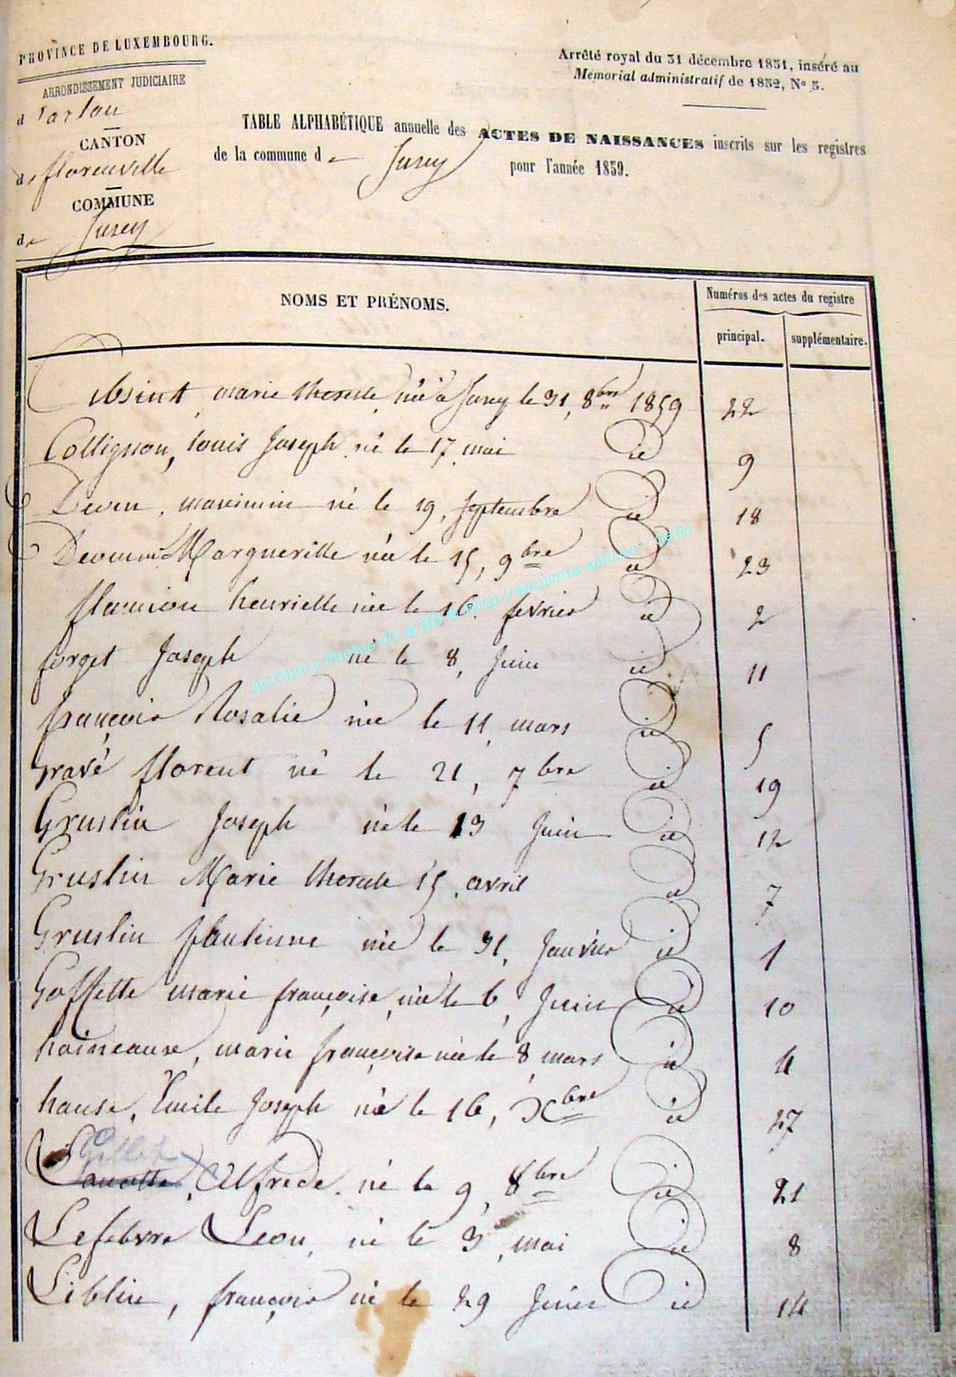 PROVINCE DE LUXEMBOURG.
ARRONDISSEMENT JUDICIAIRE
d'arlon
CANTON
de florenville
COMMUNE
de Jusey
Arrêté royal du 31 décembre 1831, inséré au
Mémorial administratif de 1832, No 5.
TABLE ALPHABÉTIQUE annuelle des ACTES DE NAISSANCES inscrits sur les registres
de la commune de Jusey pour l'année 1859.
NOMS ET PRÉNOMS.
Numéros des actes du registre
principal. supplémentaire.
absint, marie therese, née à Jusey le 31, 8bre 1859 22
Collignon, louis Joseph né le 17 mai id 9
né le 19, septembre id 18
Margueritte née le 15, 9bre id 23
henriette née le 16. fevrier id 2
forget Joseph né le 8, Juin id 11
françois Rosalie née le 11 mars id 5
Gravé florent né le 21, 7bre id 19
Gruslin Joseph né le 13 Juin id 12
Gruslin Marie therese 15. avril id 7
Gruslin née le 31, Janvier id 1
Goffette marie françoise, née le 6, Juin id 10
marie françoise née le 8, mars id 4
hause, Emile Joseph né le 16, Xbre id 27
Alfrede. né le 9, 8bre id 21
Lefebvre Leon, né le 3, mai id 8
Liblin, françois né le 29 Juin id 14